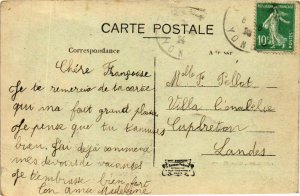 CARTE POSTALE
Correspondance
Adresse
Chère Françoise
Je te remercie de ta carte
qui m'a fait grand plaisir
Je pense que tu t'amuses
bien, j'ai déjà commencé
mes devoirs de vacances
Je t'embrasse bien fort
Ton amie Madeleine
Melle F. Pellot
Villa
Capbreton
Landes
10